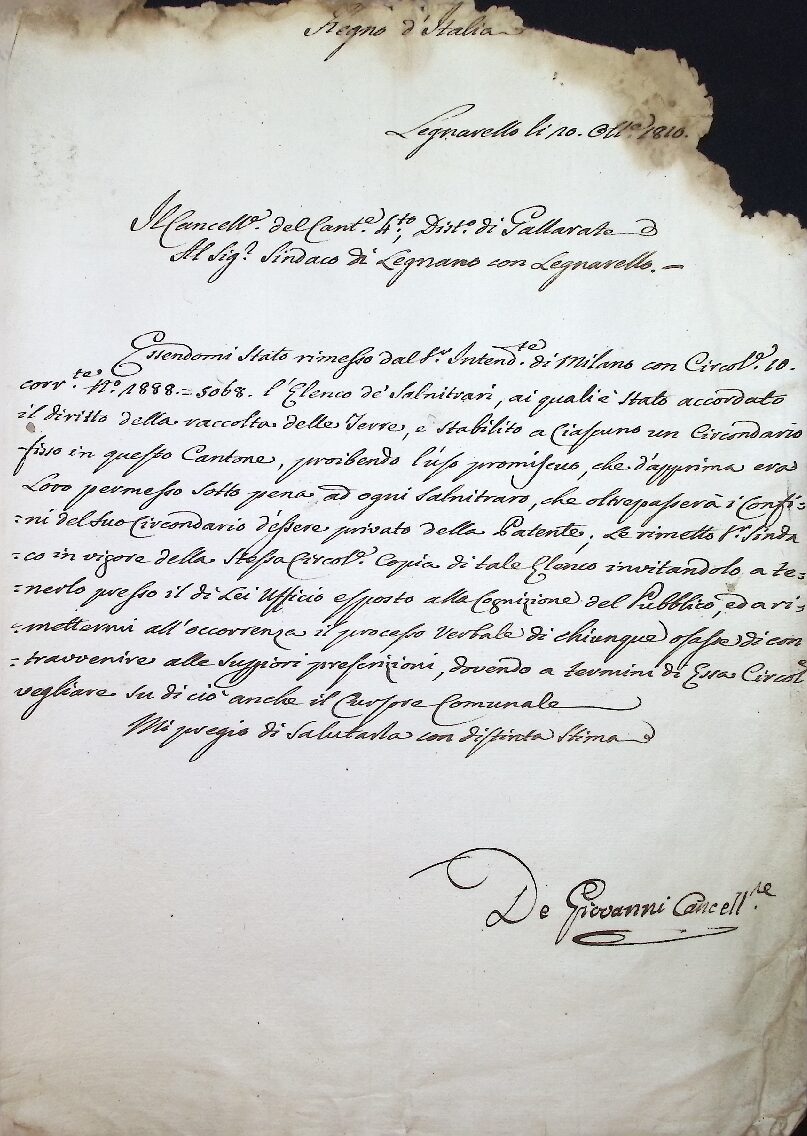 Regno d'Italia
Legnarello li 20. Ott.e 1810.
Il Cancell.e del Cant.e 4.to, Dist.o di Gallarate
Al Sig.r Sindaco di Legnano con Legnarello. =
Essendomi stato rimesso dal S.r Intend.te di Milano con Circol.e 10.
corr.te N.o 1888. = 5068. l'Elenco de' Salnitrari, ai quali è stato accordato
il diritto della raccolta delle Terre, e stabilito a Ciascuno un Circondario
fisso in questo Cantone, proibendo l'uso promiscuo, che d'apprima era
Loro permesso sotto pena ad ogni Salnitraro, che oltrepasserà i Confi=
=ni del suo Circondario d'essere privato della Patente; Le rimetto S.r Sinda
=co in vigore della stessa Circol.e Copia di tale Elenco invitandolo a te=
=nerlo presso il di Lei Ufficio esposto alla Cognizione del Pubblico, ed a ri=
=mettermi all'occorrenza il processo Verbale di chiunque osasse di con
=travvenire alle suppiori prescrizioni, dovendo a termini di Essa Circol.e
vegliare su di ciò anche il Cursore Comunale
Mi pregio di salutarla con distinta stima
De Giovanni Cancell.re